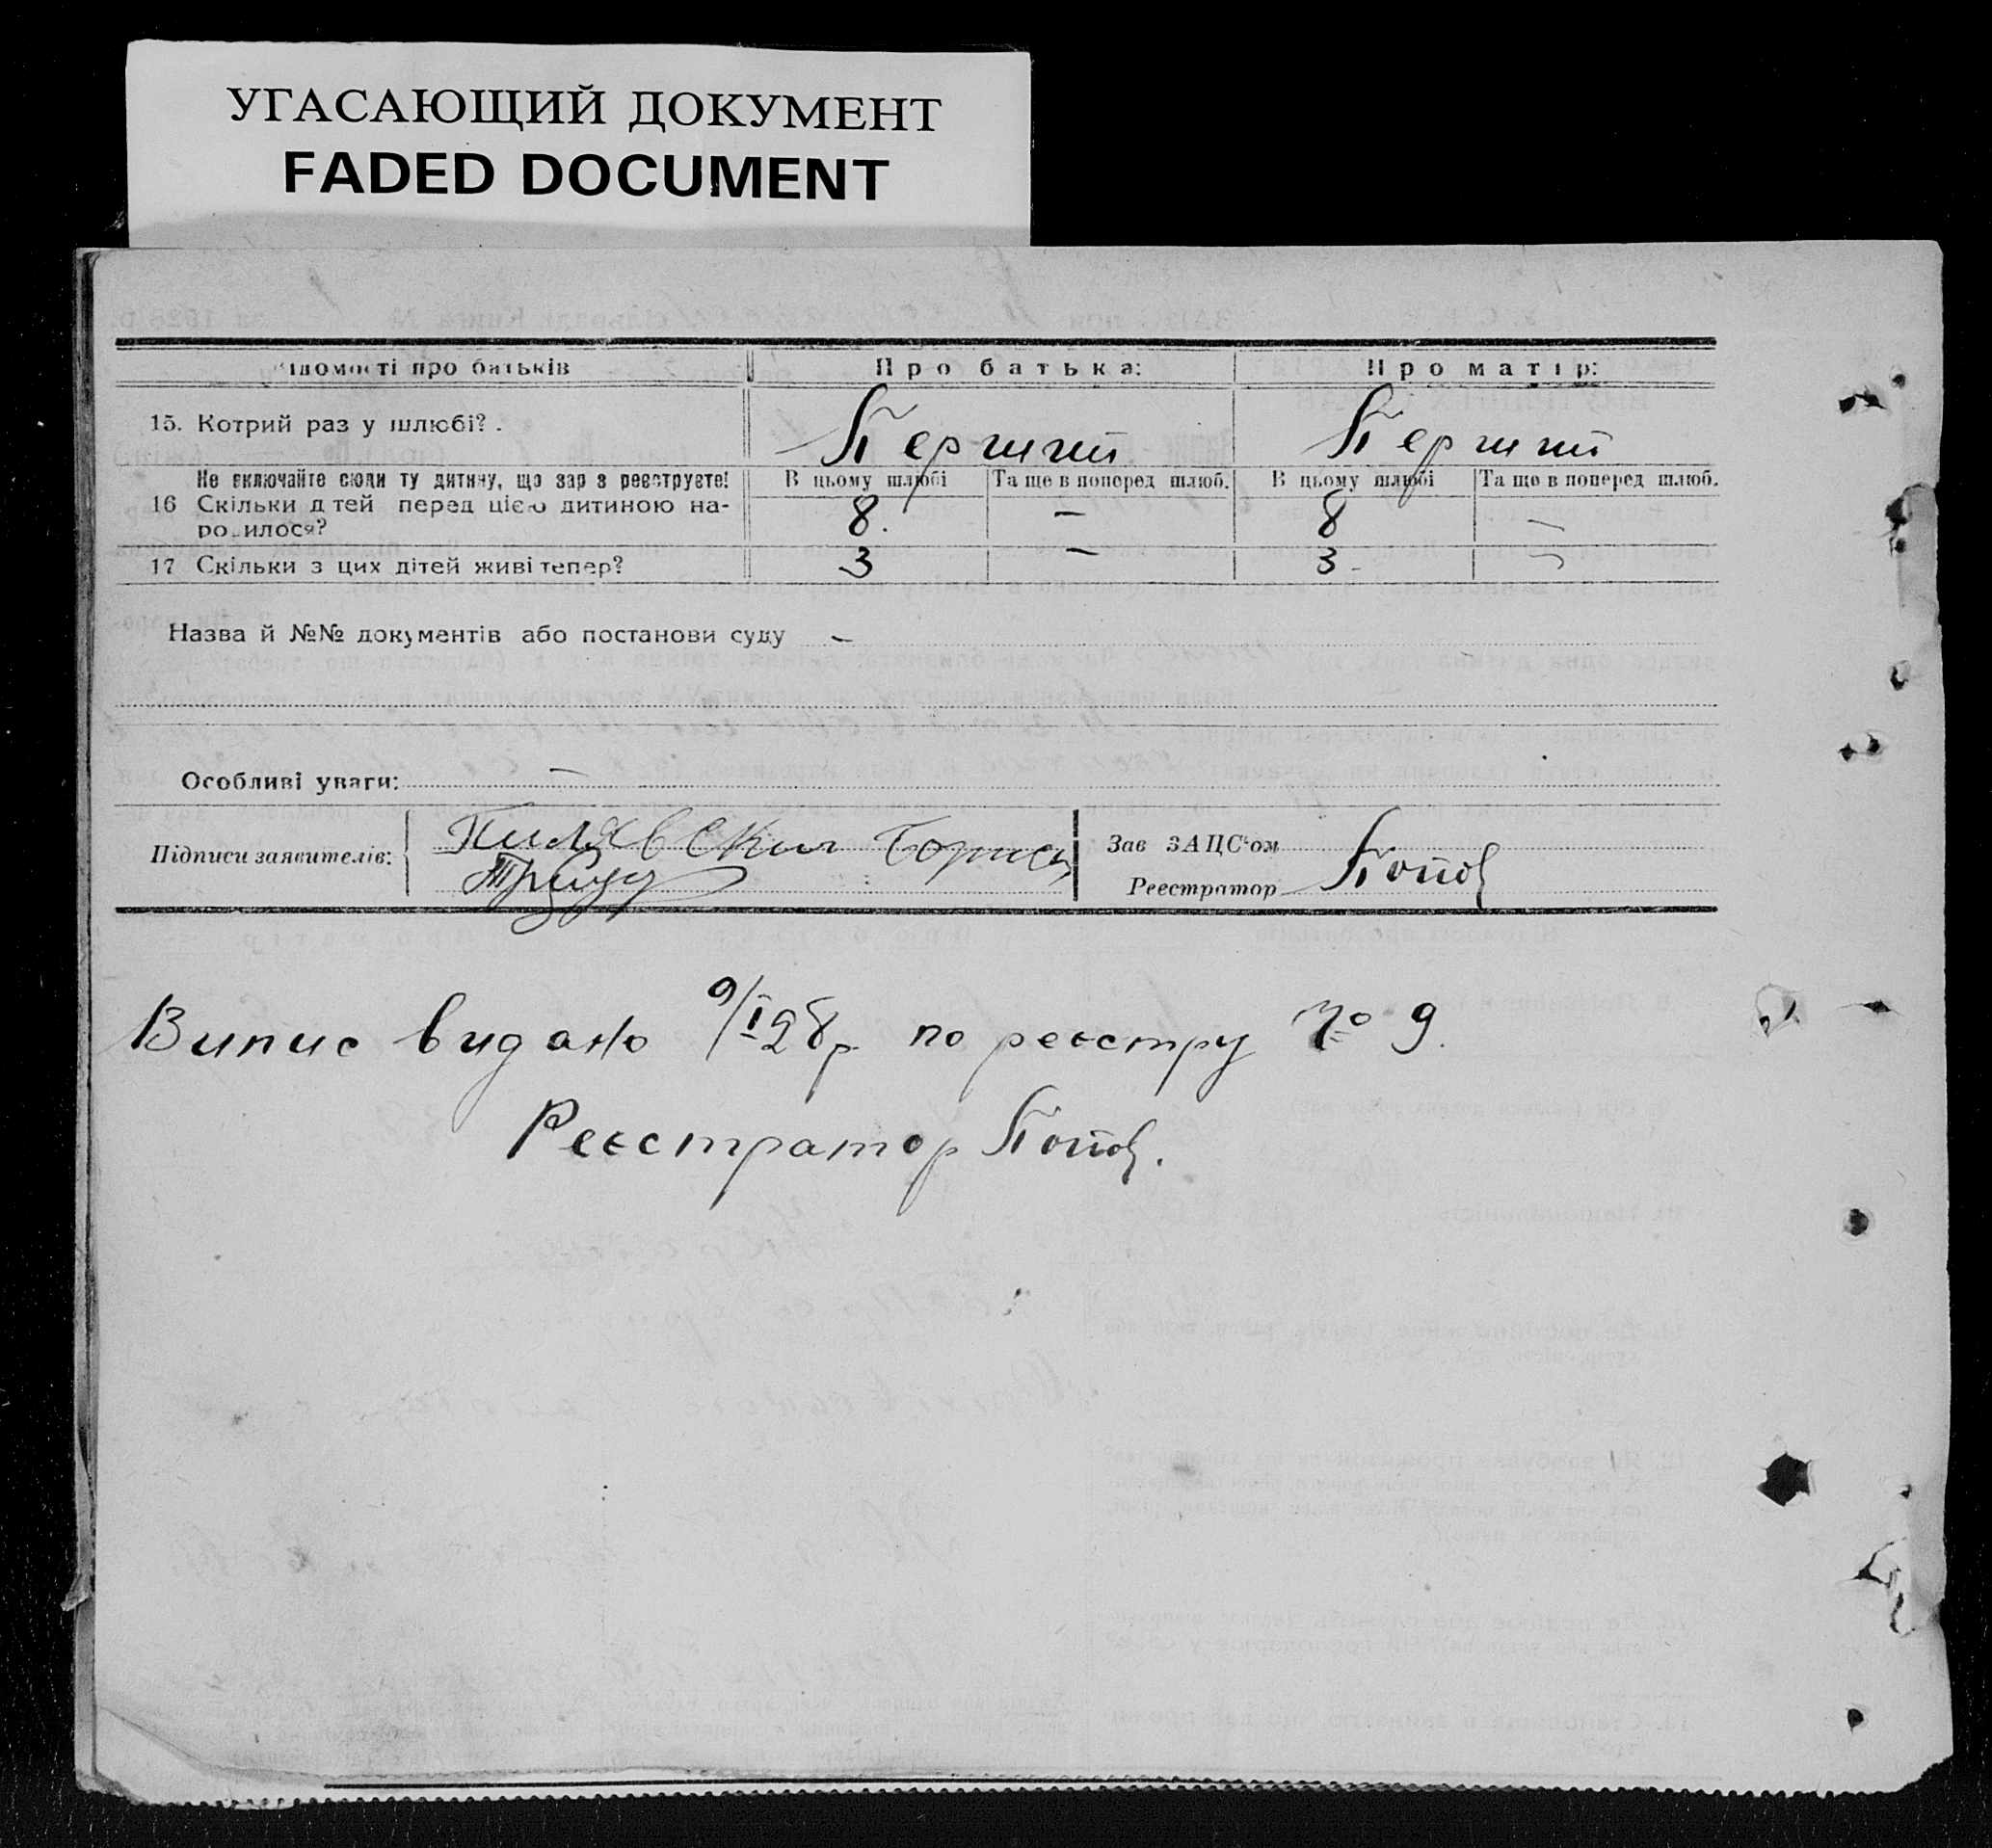 УГАСАЮЩИЙ ДОКУМЕНТ
FADED DOCUMENT
ідомості про батьків Про батька: Про матір:
15. Котрий раз у шлюбі? . Перший Перший
Не включайте сюди ту дитину, що зараз реєструєте! В цьому шлюбі Та ще в поперед шлюб. В цьому шлюбі Та ще в поперед шлюб.
16 Скільки дітей перед цією дитиною на- 8. — 8 —
родилося?
17 Скільки з цих дітей живі тепер? 3 — 3 — —
Назва й №№ документів або постанови суду —
Особливі уваги: —
Підписи заявителів: Пилявский Борис Зав ЗАЦС'ом
Реєстратор Попов
Випис видано 9/I 28 р по реєстру № 9.
Реєстратор Попов.